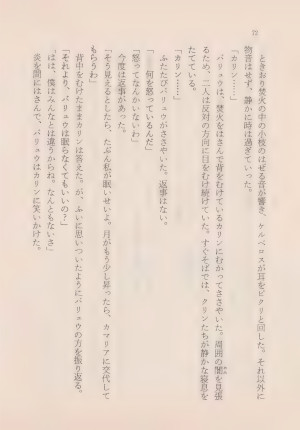 72
ときおり焚火の中の小枝のはぜる音が響き、ケルベロスが耳をピクリと回した。それ以外に
物音はせず、静かに時は過ぎていった。
「カリン……」
バリュウは、焚火をはさんで背をむけているカリンにむかってささやいた。周囲の闇を見張
るため、二人は反対の方向に目をむけ続けていた。すぐそばでは、クリンたちが静かな寝息を
たてている。
「カリン……」
ふたたびバリュウがささやいた。返事はない。
「……何を怒っているんだ」
「怒ってなんかいないわ」
今度は返事があった。
「そう見えるとしたら、たぶん私が眠いせいよ。月がもう少し昇ったら、カマリアに交代して
もらうわ」
背中をむけたままカリンは答えた。が、ふいに思いついたようにバリュウの方を振り返る。
「それより、バリュウは眠らなくてもいいの？」
「はは、僕はみんなとは違うからね。なんともないさ」
炎を間にはさんで、バリュウはカリンに笑いかけた。